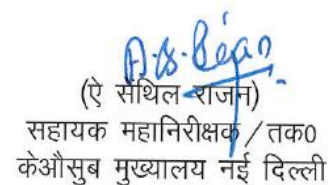 (ऐ सेंथिल राजन)
सहायक महानिरीक्षक / तक0
केऔसुब मुख्यालय नई दिल्ली